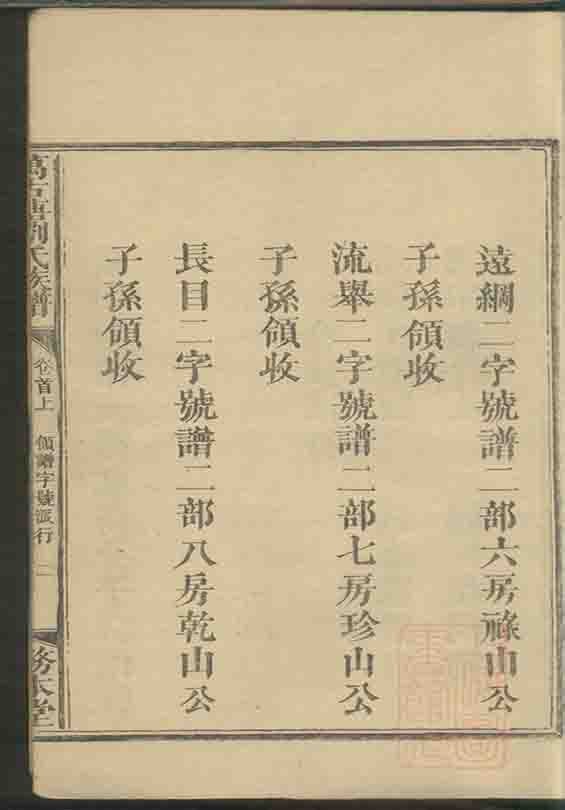 遠綱二字號譜二部六房祿山公
子孫領收
流舉二字號譜二部七房珍山公
子孫領收
長目二字號譜二部八房乾山公
子孫領收
劉氏族譜
卷首上
領譜字號派行
二
務本堂